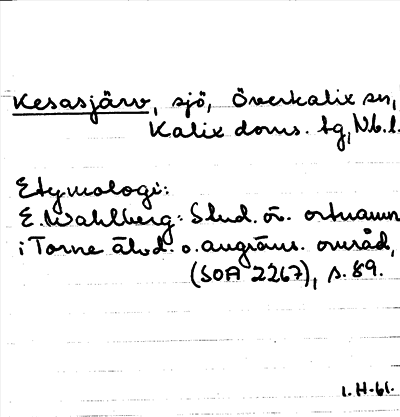 Kesasjärv, sjö, Överkalix sn,
Kalix doms. tg, Nb.l.
Etymologi:
E. Wahlberg: Stud. ö. ortnamn
i Torne älvd. o. angräns. område,
(SOA 2267), s. 89.
I. H-61.